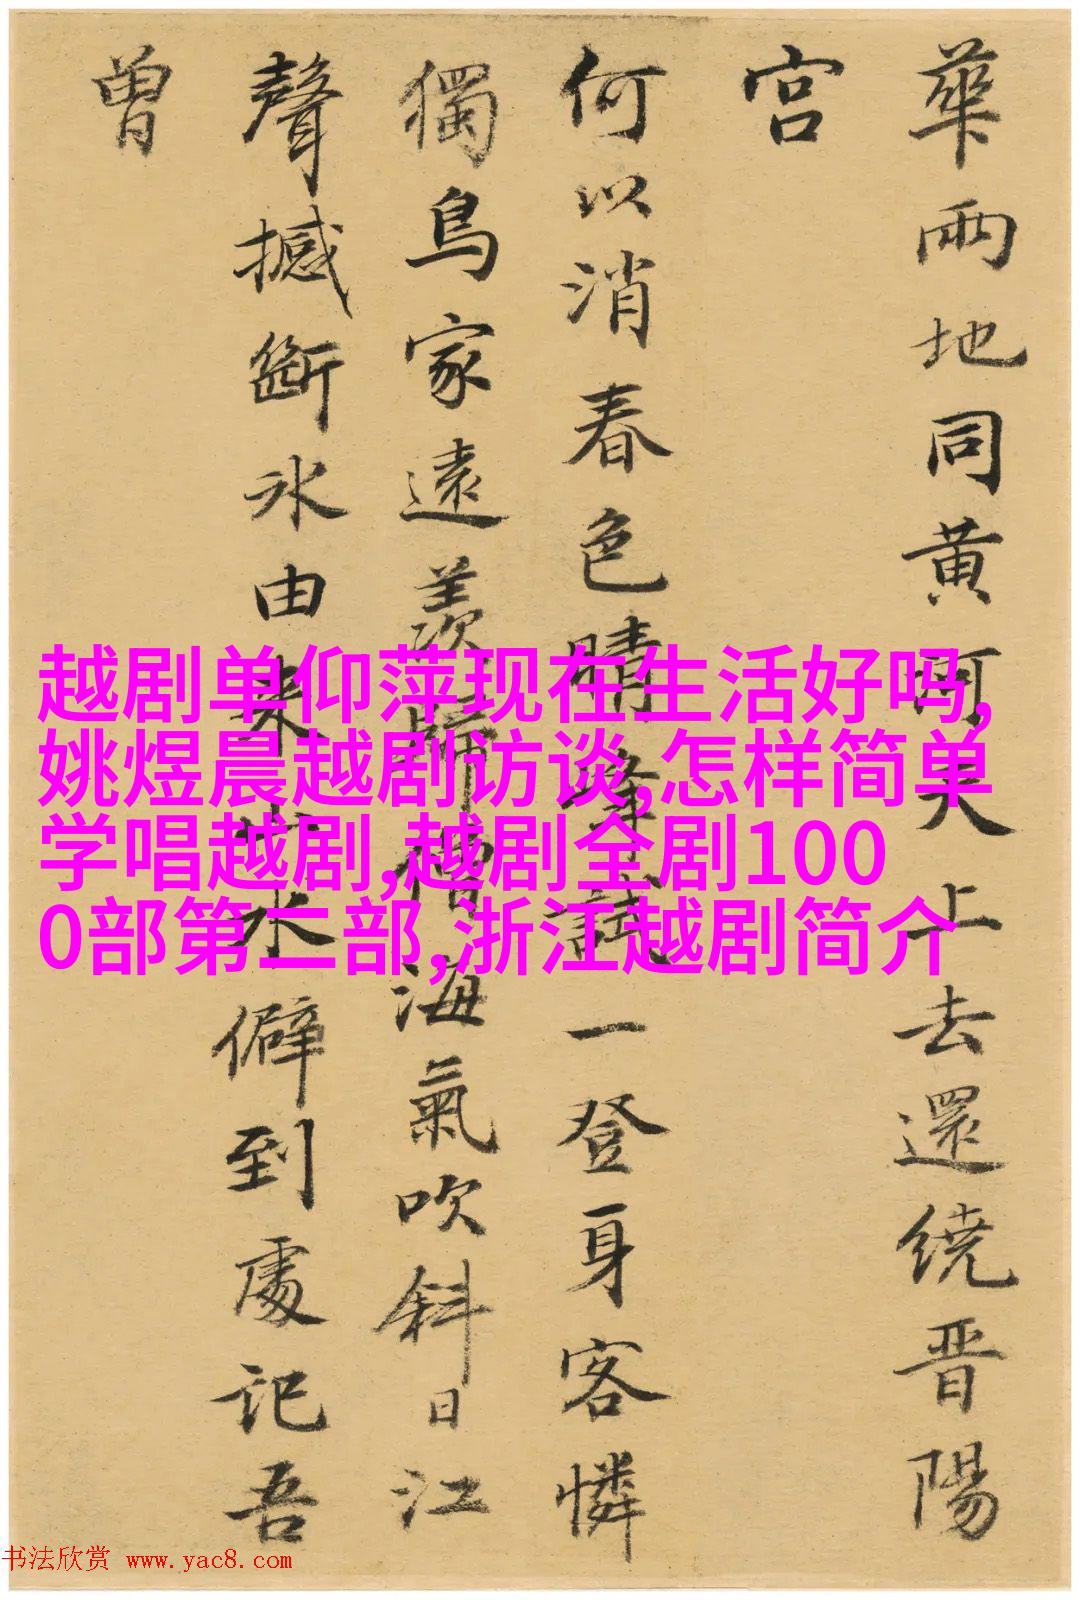 華兩地同黃河天上去還繞晉陽
宮
何以消春色晴峰試一登身客憐
獨鳥家遠羨歸僧海氣吹斜日江
聲撼斷冰由來山水僻到處記吾
曾
越剧单仰萍现在生活好吗,
姚煜晨越剧访谈,怎样简单
学唱越剧,越剧全剧100
0部第二部,浙江越剧简介
书法欣赏 www.yac8.com